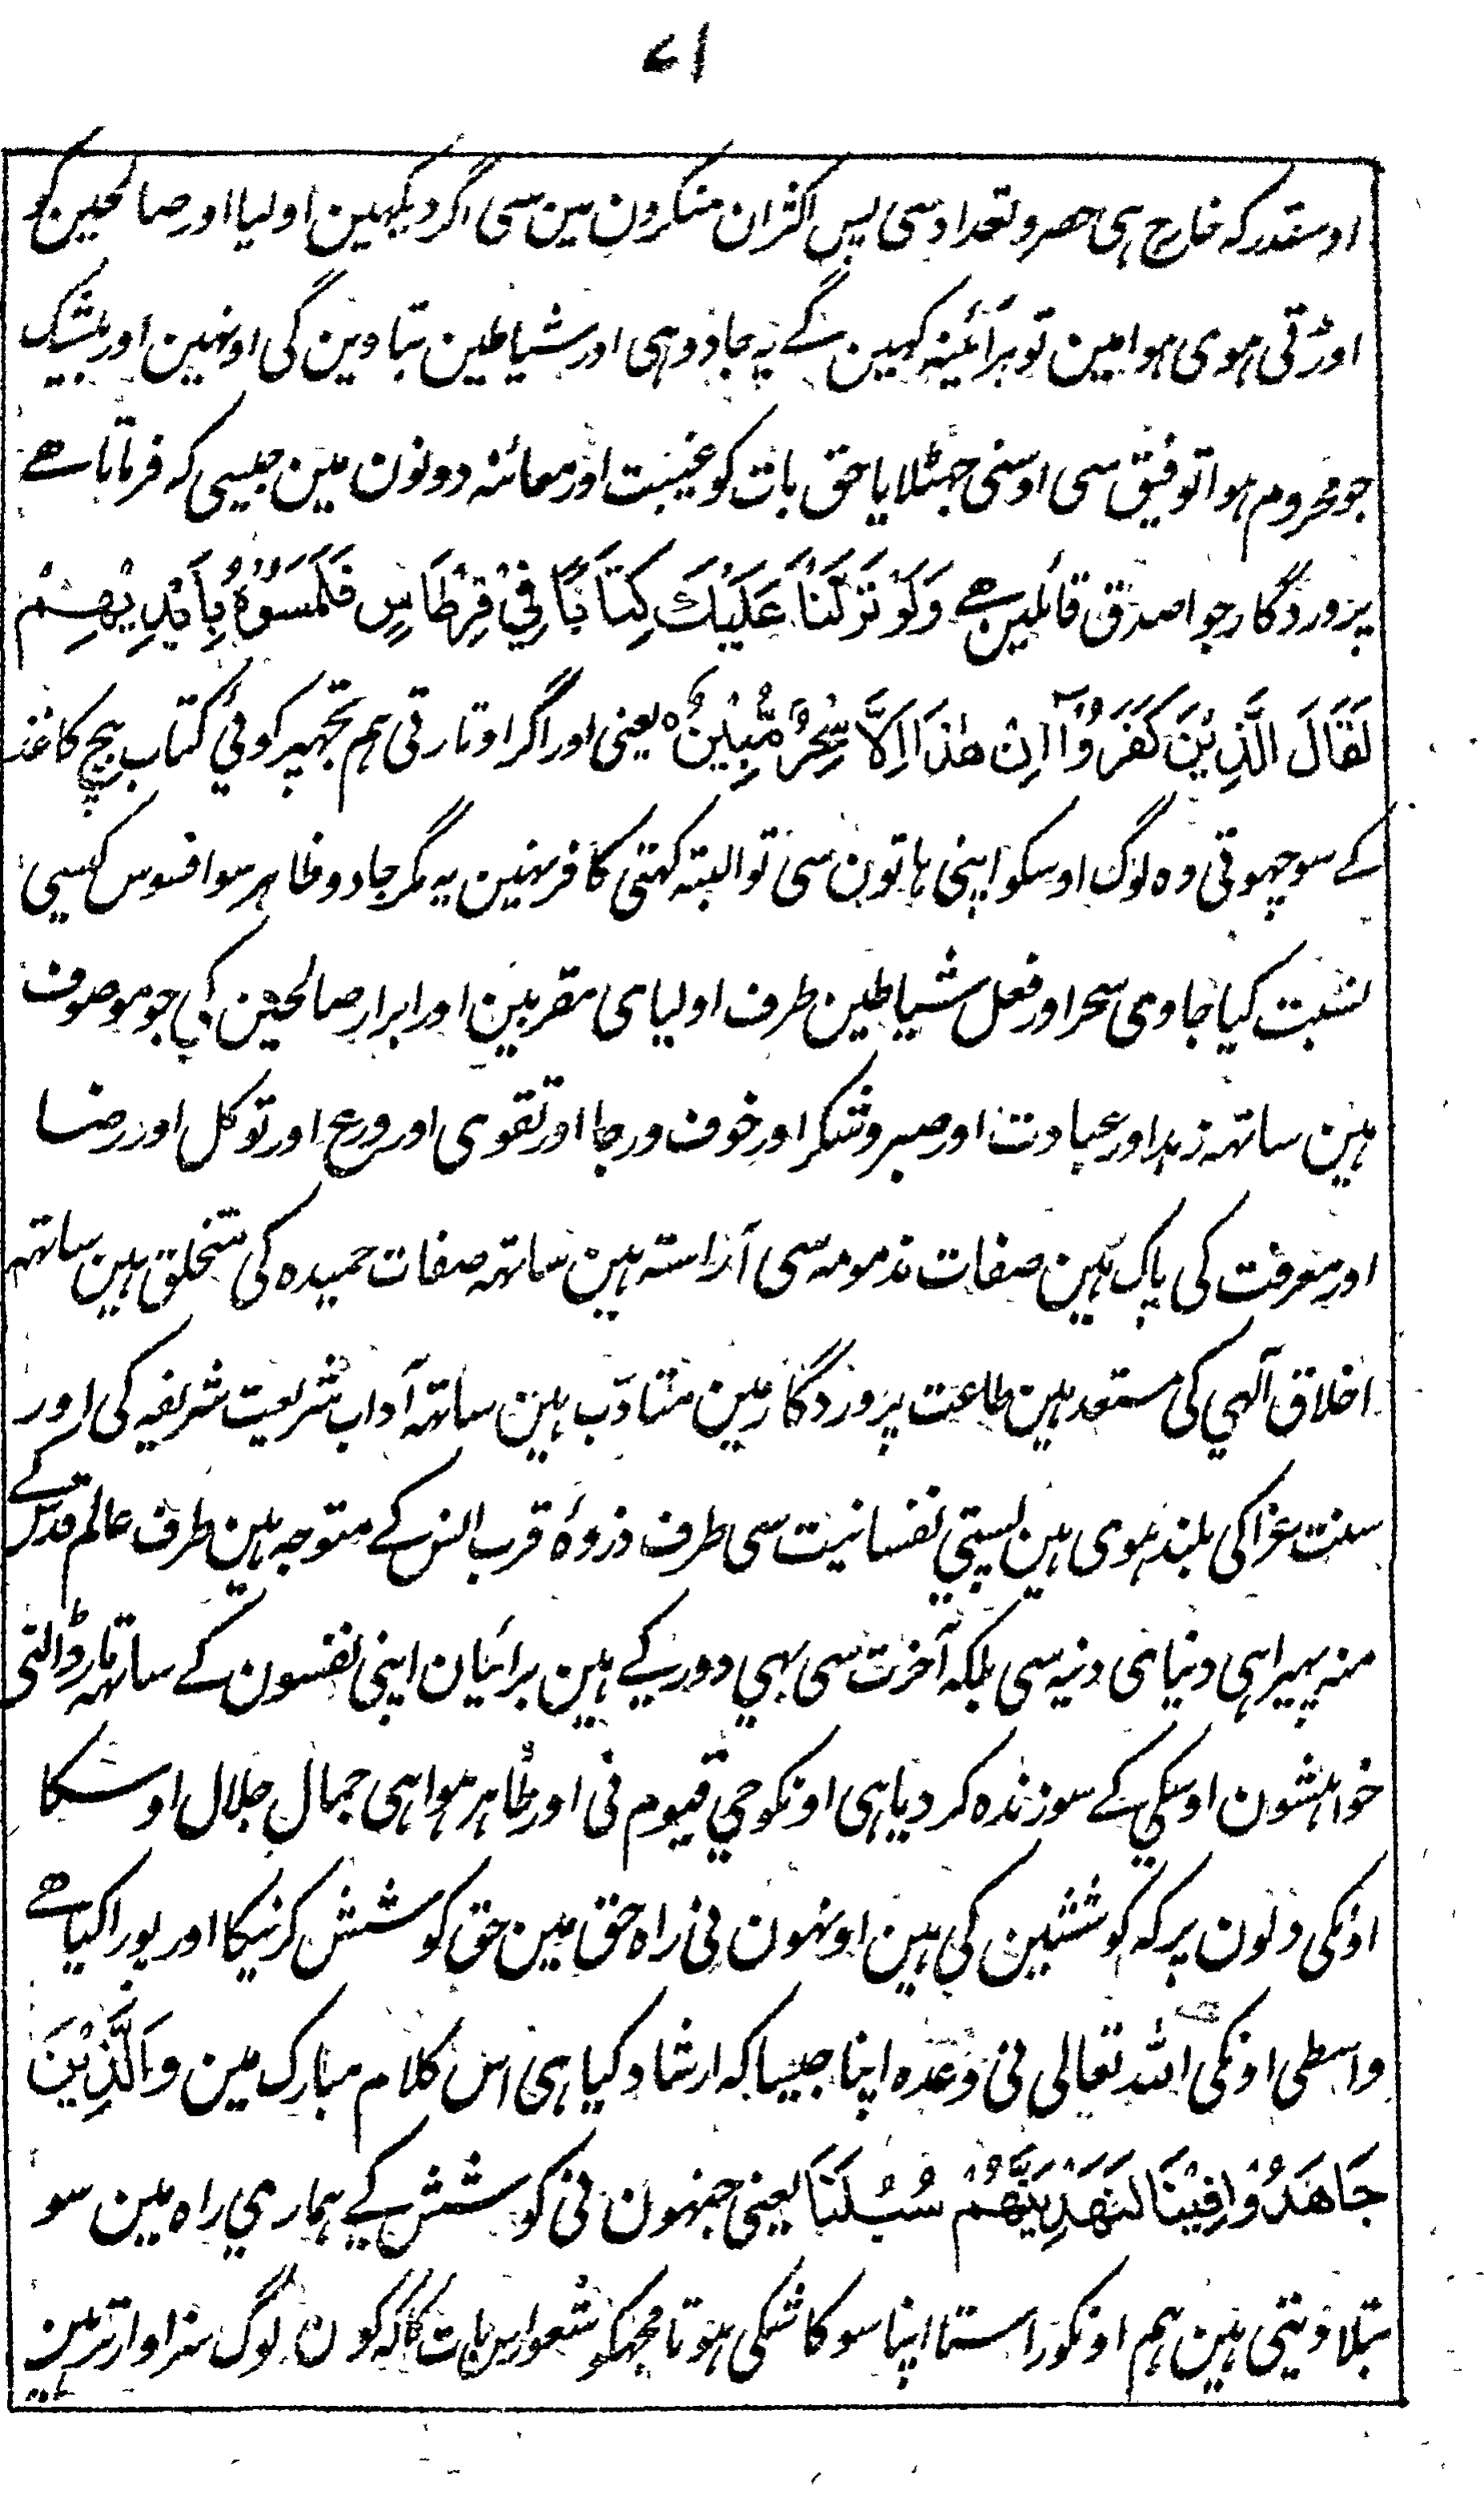 ۷۱
اوسقدر کہ خارج ہی حصر و تعداد سی پس اکثر ان منکرون مین سی اگر دیکہین اولیا اور صالحین کو
اوڑتی ہوی ہوا مین تو ہر آئینہ کہین گے یہ جادو ہی اور شیاطین بتاوین گی اونہین اور بیشک
جو محروم ہوا توفیق سی اوسنی جہٹلایا حق بات کو غیبت اور معائنہ دونون مین جیسی کہ فرماتا ہے
پروردگار جو اصدق قائلین ہے وَلَوْ نَزَّلْنَا عَلَيْكَ كِتَابًا فِيْ قِرْطَاسٍ فَلَمَسُوْهُ بِاَيْدِيْهِمْ
لَقَالَ الَّذِيْنَ كَفَرُوْآ اِنْ هٰذَا اِلَّا سِحْرٌ مُّبِيْنٌ ہ یعنی اور اگر اوتارتی ہم تجہپر کوئی کتاب بیچ کاغذ
کے سو چہوتی وہ لوگ اوسکو اپنی ہاتون سی تو البتہ کہتی کافر نہین یہ مگر جادو ظاہر سو افسوس کیسی
نسبت کیا جاوی سحر اور فعل شیاطین طرف اولیای مقربین اور ابرار صالحین کی جو موصوف
ہین ساتہہ زہد اور عبادت اور صبر و شکر اور خوف و رجا اور تقوی اور ورع اور توکل اور رضا
اور معرفت کی پاک ہین صفات مذمومہ سی آراستہ ہین ساتہہ صفات حمیدہ کی متخلق ہین ساتہہ
اخلاق آلہی کی مستعد ہین طاعت پروردگار مین متادّب ہین ساتہہ آداب شریعت شریفہ کی اور
سنت غرا کی بلند ہوی ہین پستیٔ نفسانیت سی طرف ذروۂ قرب انس کے متوجہ ہین طرف عالم قدس کے
منہ پہیرا ہی دنیای دنیہ سی بلکہ آخرت سی بہی دور کیے ہین برائیان اپنی نفسون کے ساتہہ مار ڈالنی
خواہشون اوسکی کے سو زندہ کر دیا ہی اونکو حی قیوم نی اور ظاہر ہوا ہی جمال جلال اوسکا
اونکی دلون پر کہ کوششین کی ہین اونہون نی راہ حق مین حق کوشش کرنیکا اور پورا کیا ہے
واسطی اونکی اللہ تعالی نی وعدہ اپنا جیسا کہ ارشاد کیا ہی اس کلام مبارک مین وَالَّذِيْنَ
جَاهَدُوْا فِيْنَا لَنَهْدِيَنَّهُمْ سُبُلَنَا یعنی جنہون نی کوشش کے ہماری راہ مین سو
بتلا دیتی ہین ہم اونکو راستا اپنا سو کاشکی ہوتا مجہکو شعور اس بات کا کہ کون لوگ سزاوارتر ہین